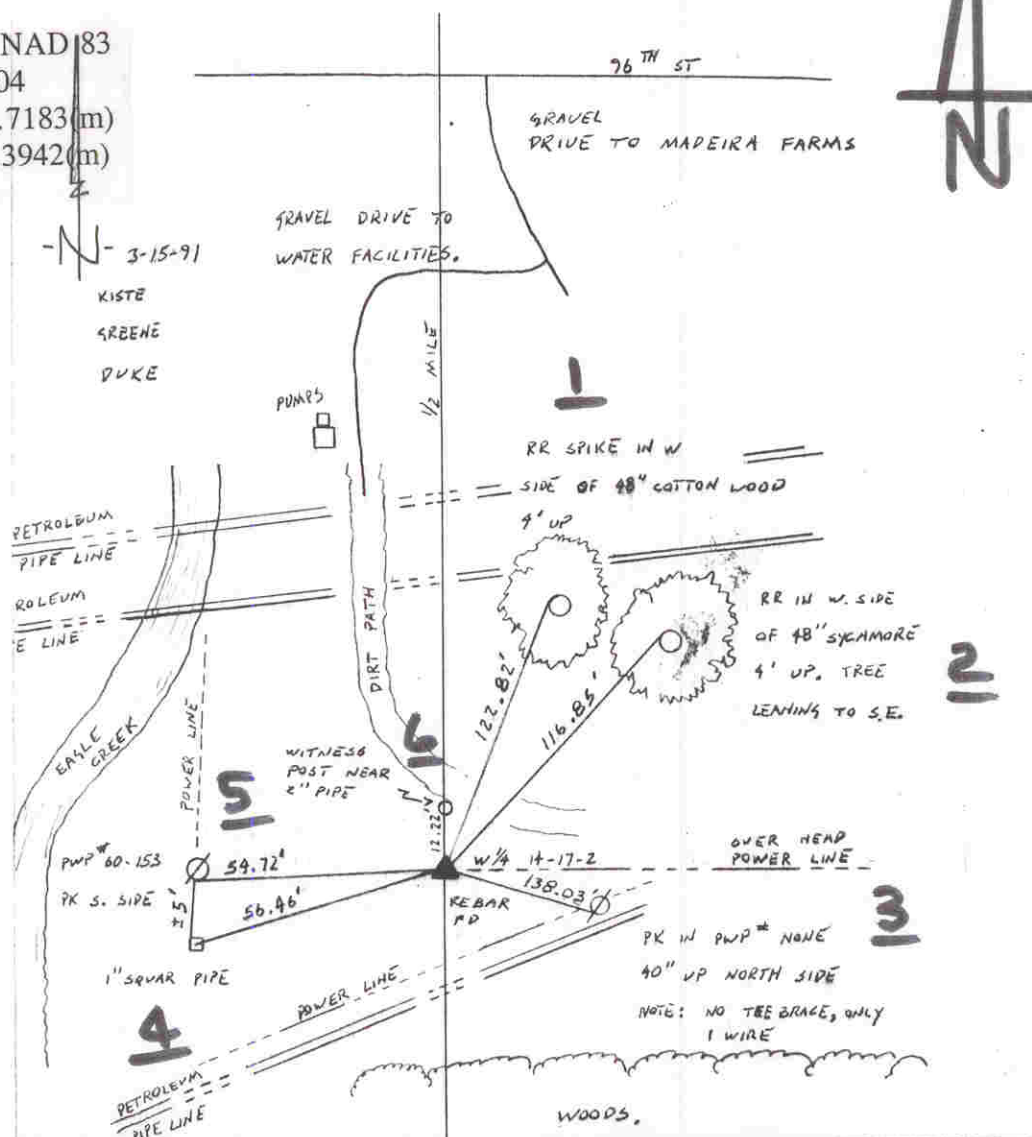 NAD 83
04
.7183(m)
3942(m)
N
-N- 3-15-91
KISTE
GREENE
DUKE
96TH ST
GRAVEL
DRIVE TO MADEIRA FARMS
GRAVEL DRIVE TO
WATER FACILITIES.
1/2 MILE
PUMPS
1
RR SPIKE IN W
SIDE OF 48" COTTON WOOD
4' UP
PETROLEUM
PIPE LINE
ROLEUM
E LINE
DIRT PATH
RR IN W. SIDE
OF 48" SYCAMORE
4' UP. TREE
LEANING TO S.E.
2
122.82'
116.85'
EAGLE
CREEK
POWER LINE
5
WITNESS
POST NEAR
2" PIPE
6
12.22'
PWP# 60-153
PK S. SIDE
54.72'
56.46'
±5'
1" SQUAR PIPE
4
W 1/4 14-17-2
REBAR
FD
138.03'
OVER HEAD
POWER LINE
3
PK IN PWP# NONE
40" UP NORTH SIDE
NOTE: NO TEE BRACE, ONLY
1 WIRE
POWER LINE
PETROLEUM
PIPE LINE
WOODS.